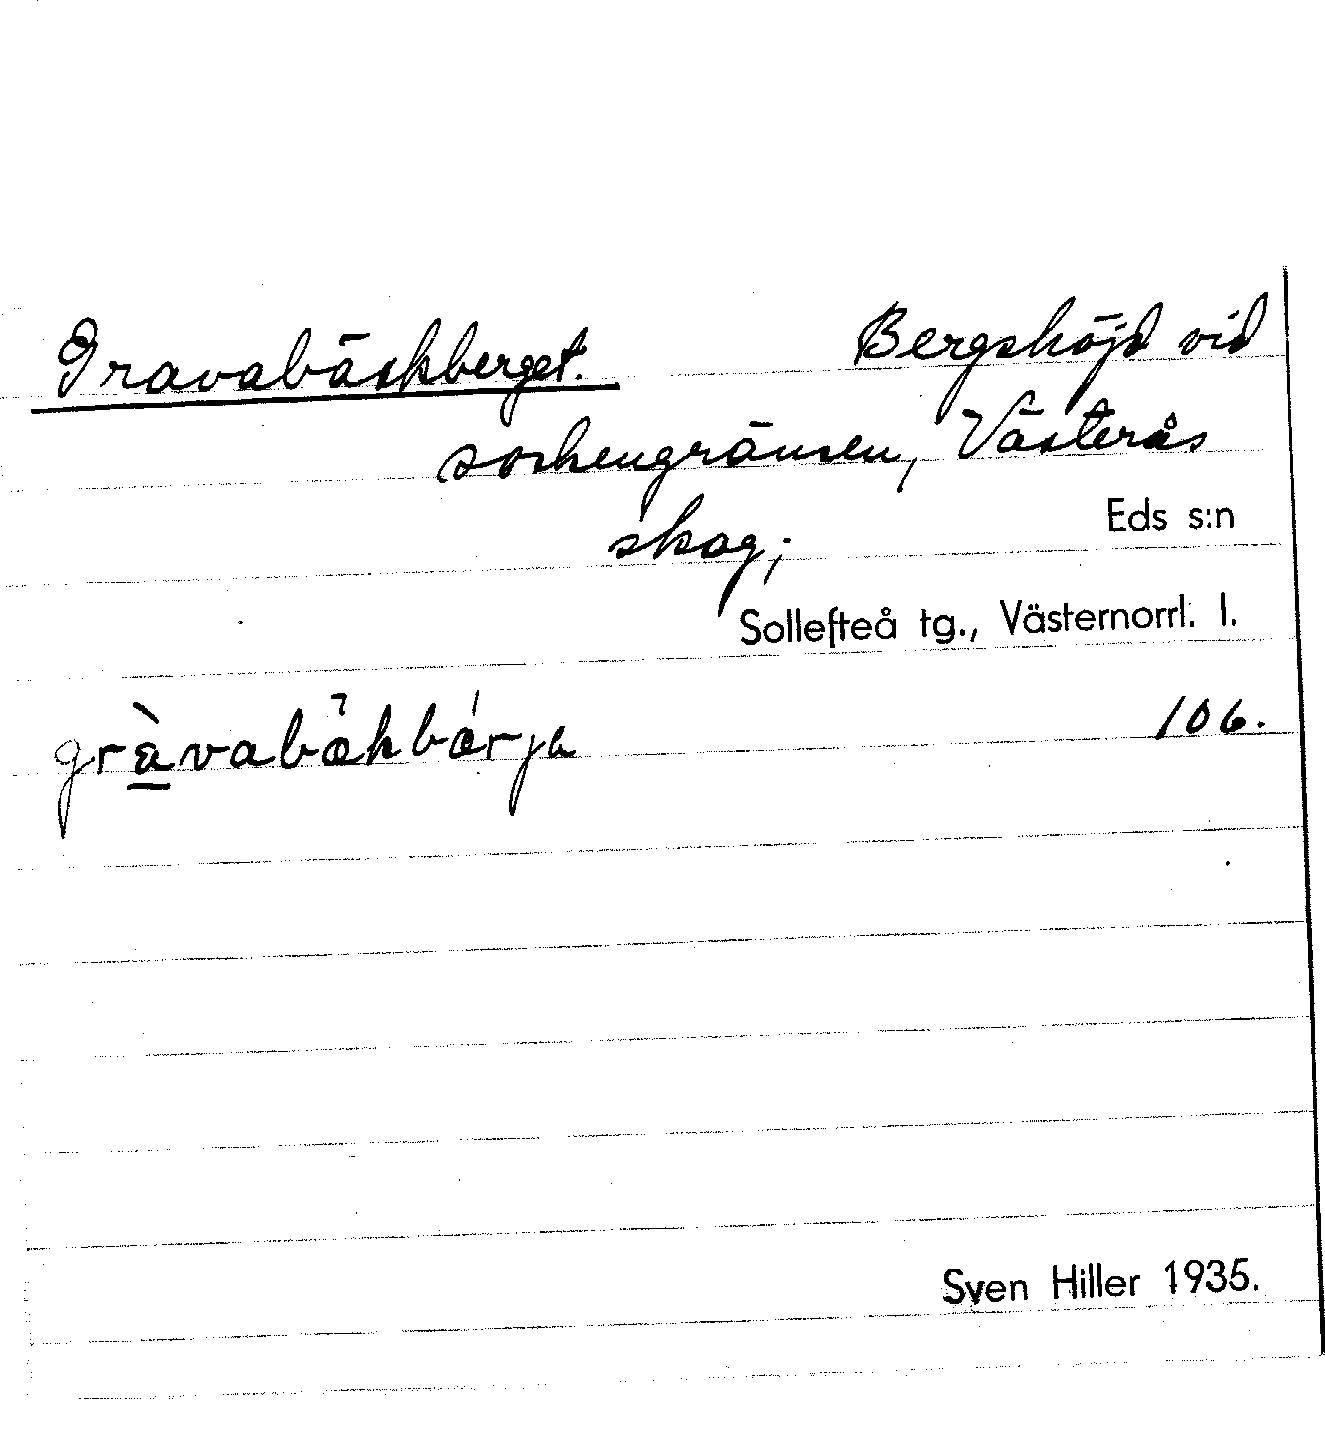 Gravabäckberget. Bergshöjd vid
sockengränsen, Västerås
skog;
Eds s:n
Sollefteå tg., Västernorrl. l.
106.
Sven Hiller 1935.